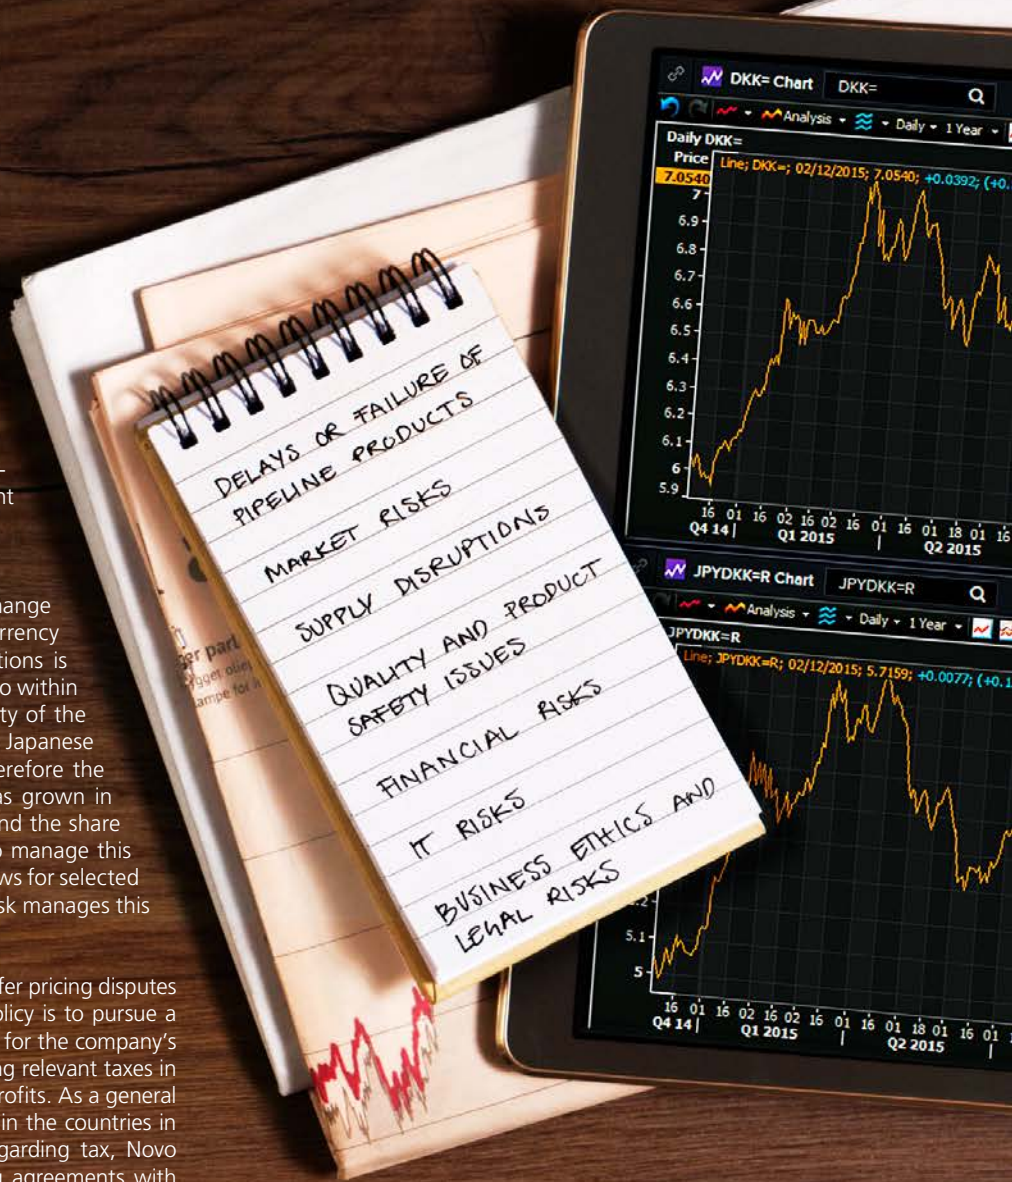 nt
change
currency
tions is
o within
ty of the
Japanese
therefore the
as grown in
nd the share
o manage this
ws for selected
sk manages this
fer pricing disputes
olicy is to pursue a
for the company's
ng relevant taxes in
rofits. As a general
in the countries in
garding tax, Novo
agreements with
DELAYS OR FAILURE OF
PIPELINE PRODUCTS
MARKET RISKS
SUPPLY DISRUPTIONS
QUALITY AND PRODUCT
SAFETY ISSUES
FINANCIAL RISKS
IT RISKS
BUSINESS ETHICS AND
LEGAL RISKS
DKK= Chart DKK=
Analysis Daily 1 Year
Daily DKK=
Price
Line; DKK=; 02/12/2015; 7.0540; +0.0392; (+0.
7.0540
7
6.9
6.8
6.7
6.6
6.5
6.4
6.3
6.2
6.1
6
5.9
16 01 16 02 16 02 16 01 16 01 18 01 16
Q4 14 Q1 2015 Q2 2015
JPYDKK=R Chart JPYDKK=R
Analysis Daily 1 Year
JPYDKK=R
Line; JPYDKK=R; 02/12/2015; 5.7159; +0.0077; (+0.1
5.1
5
16 01 16 02 16 02 16 01 16 01 18 01 16 01
Q4 14 Q1 2015 Q2 2015